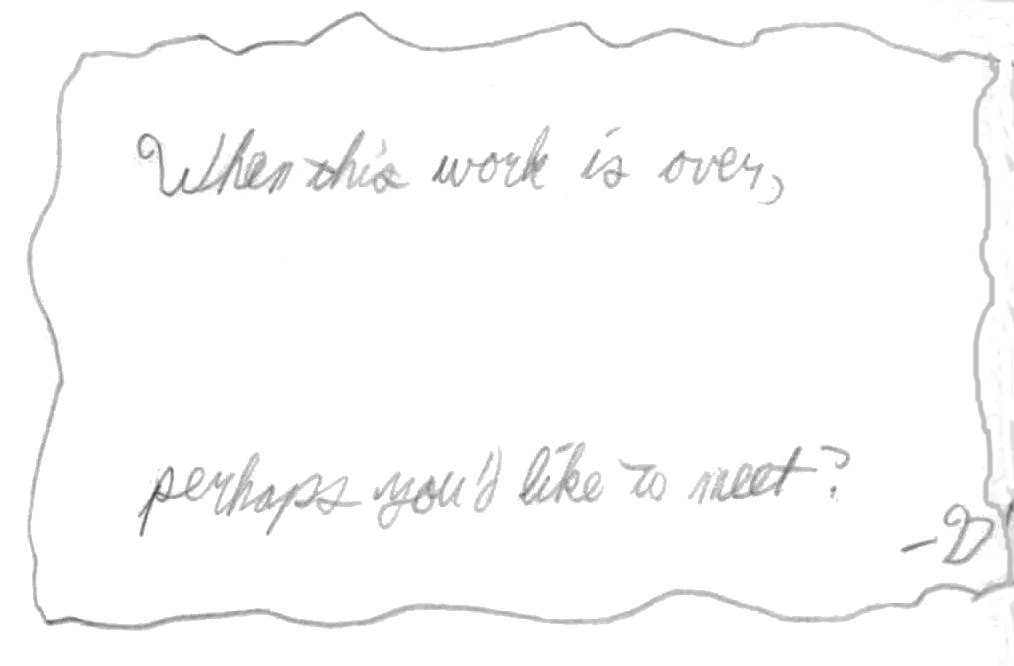 When this work is over,
perhaps you'd like to meet?